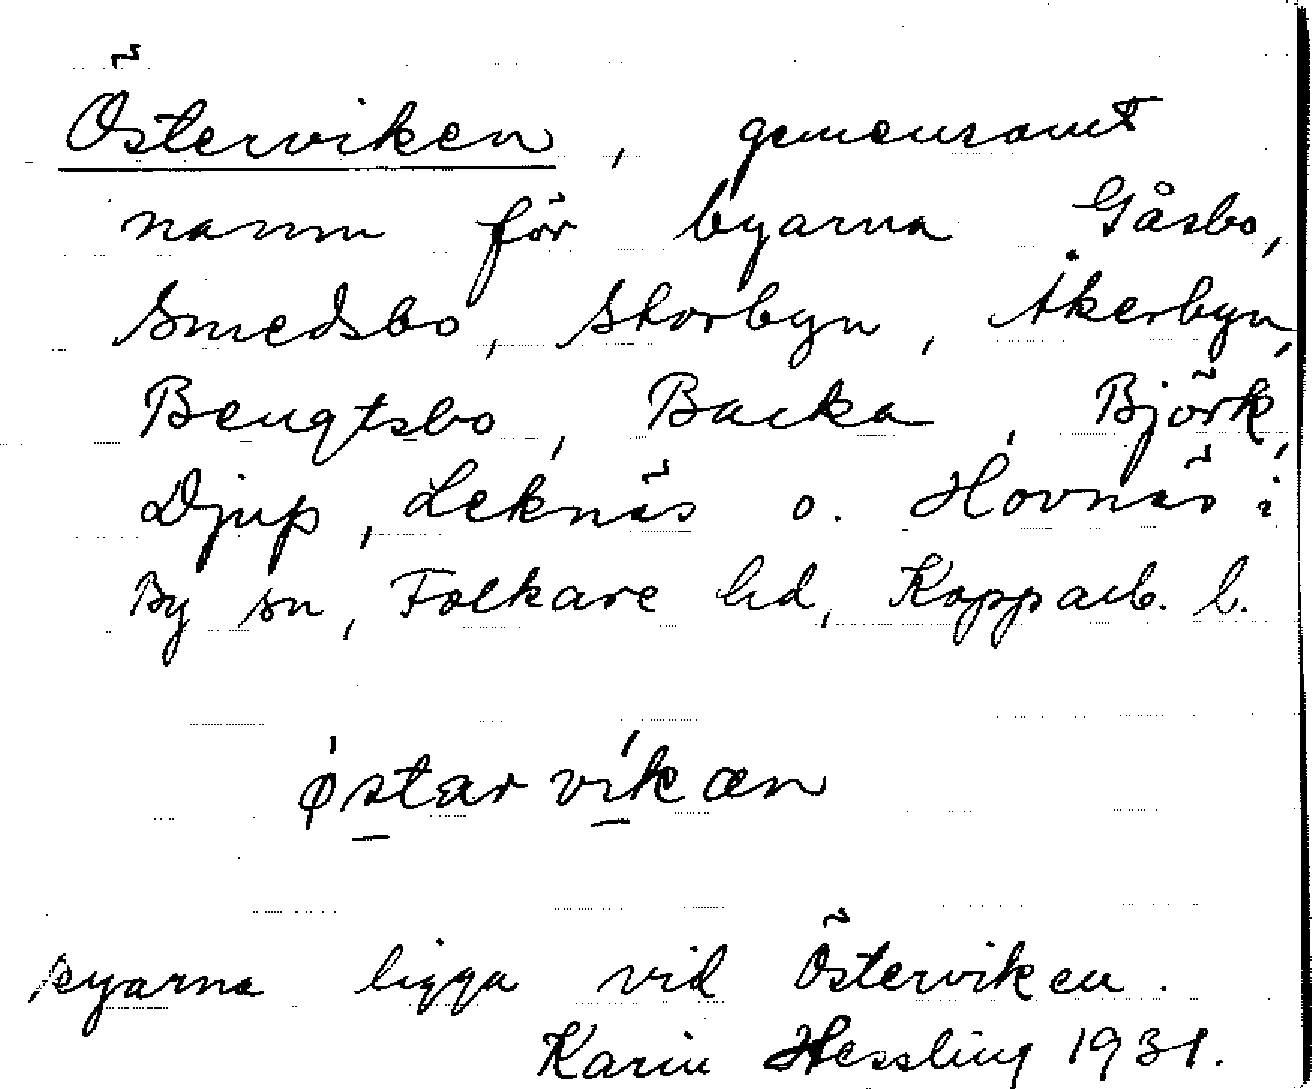 Österviken, gemensamt
namn för byarna Gåsbo,
Smedsbo, Storbyn, Åkerbyn,
Bengtsbo, Backa, Björk,
Djup, Leknäs o. Hovnäs i
By sn, Folkare hd, Kopparb. l.
østar víkæn
byarna ligga vid Österviken.
Karin Hessling 1931.